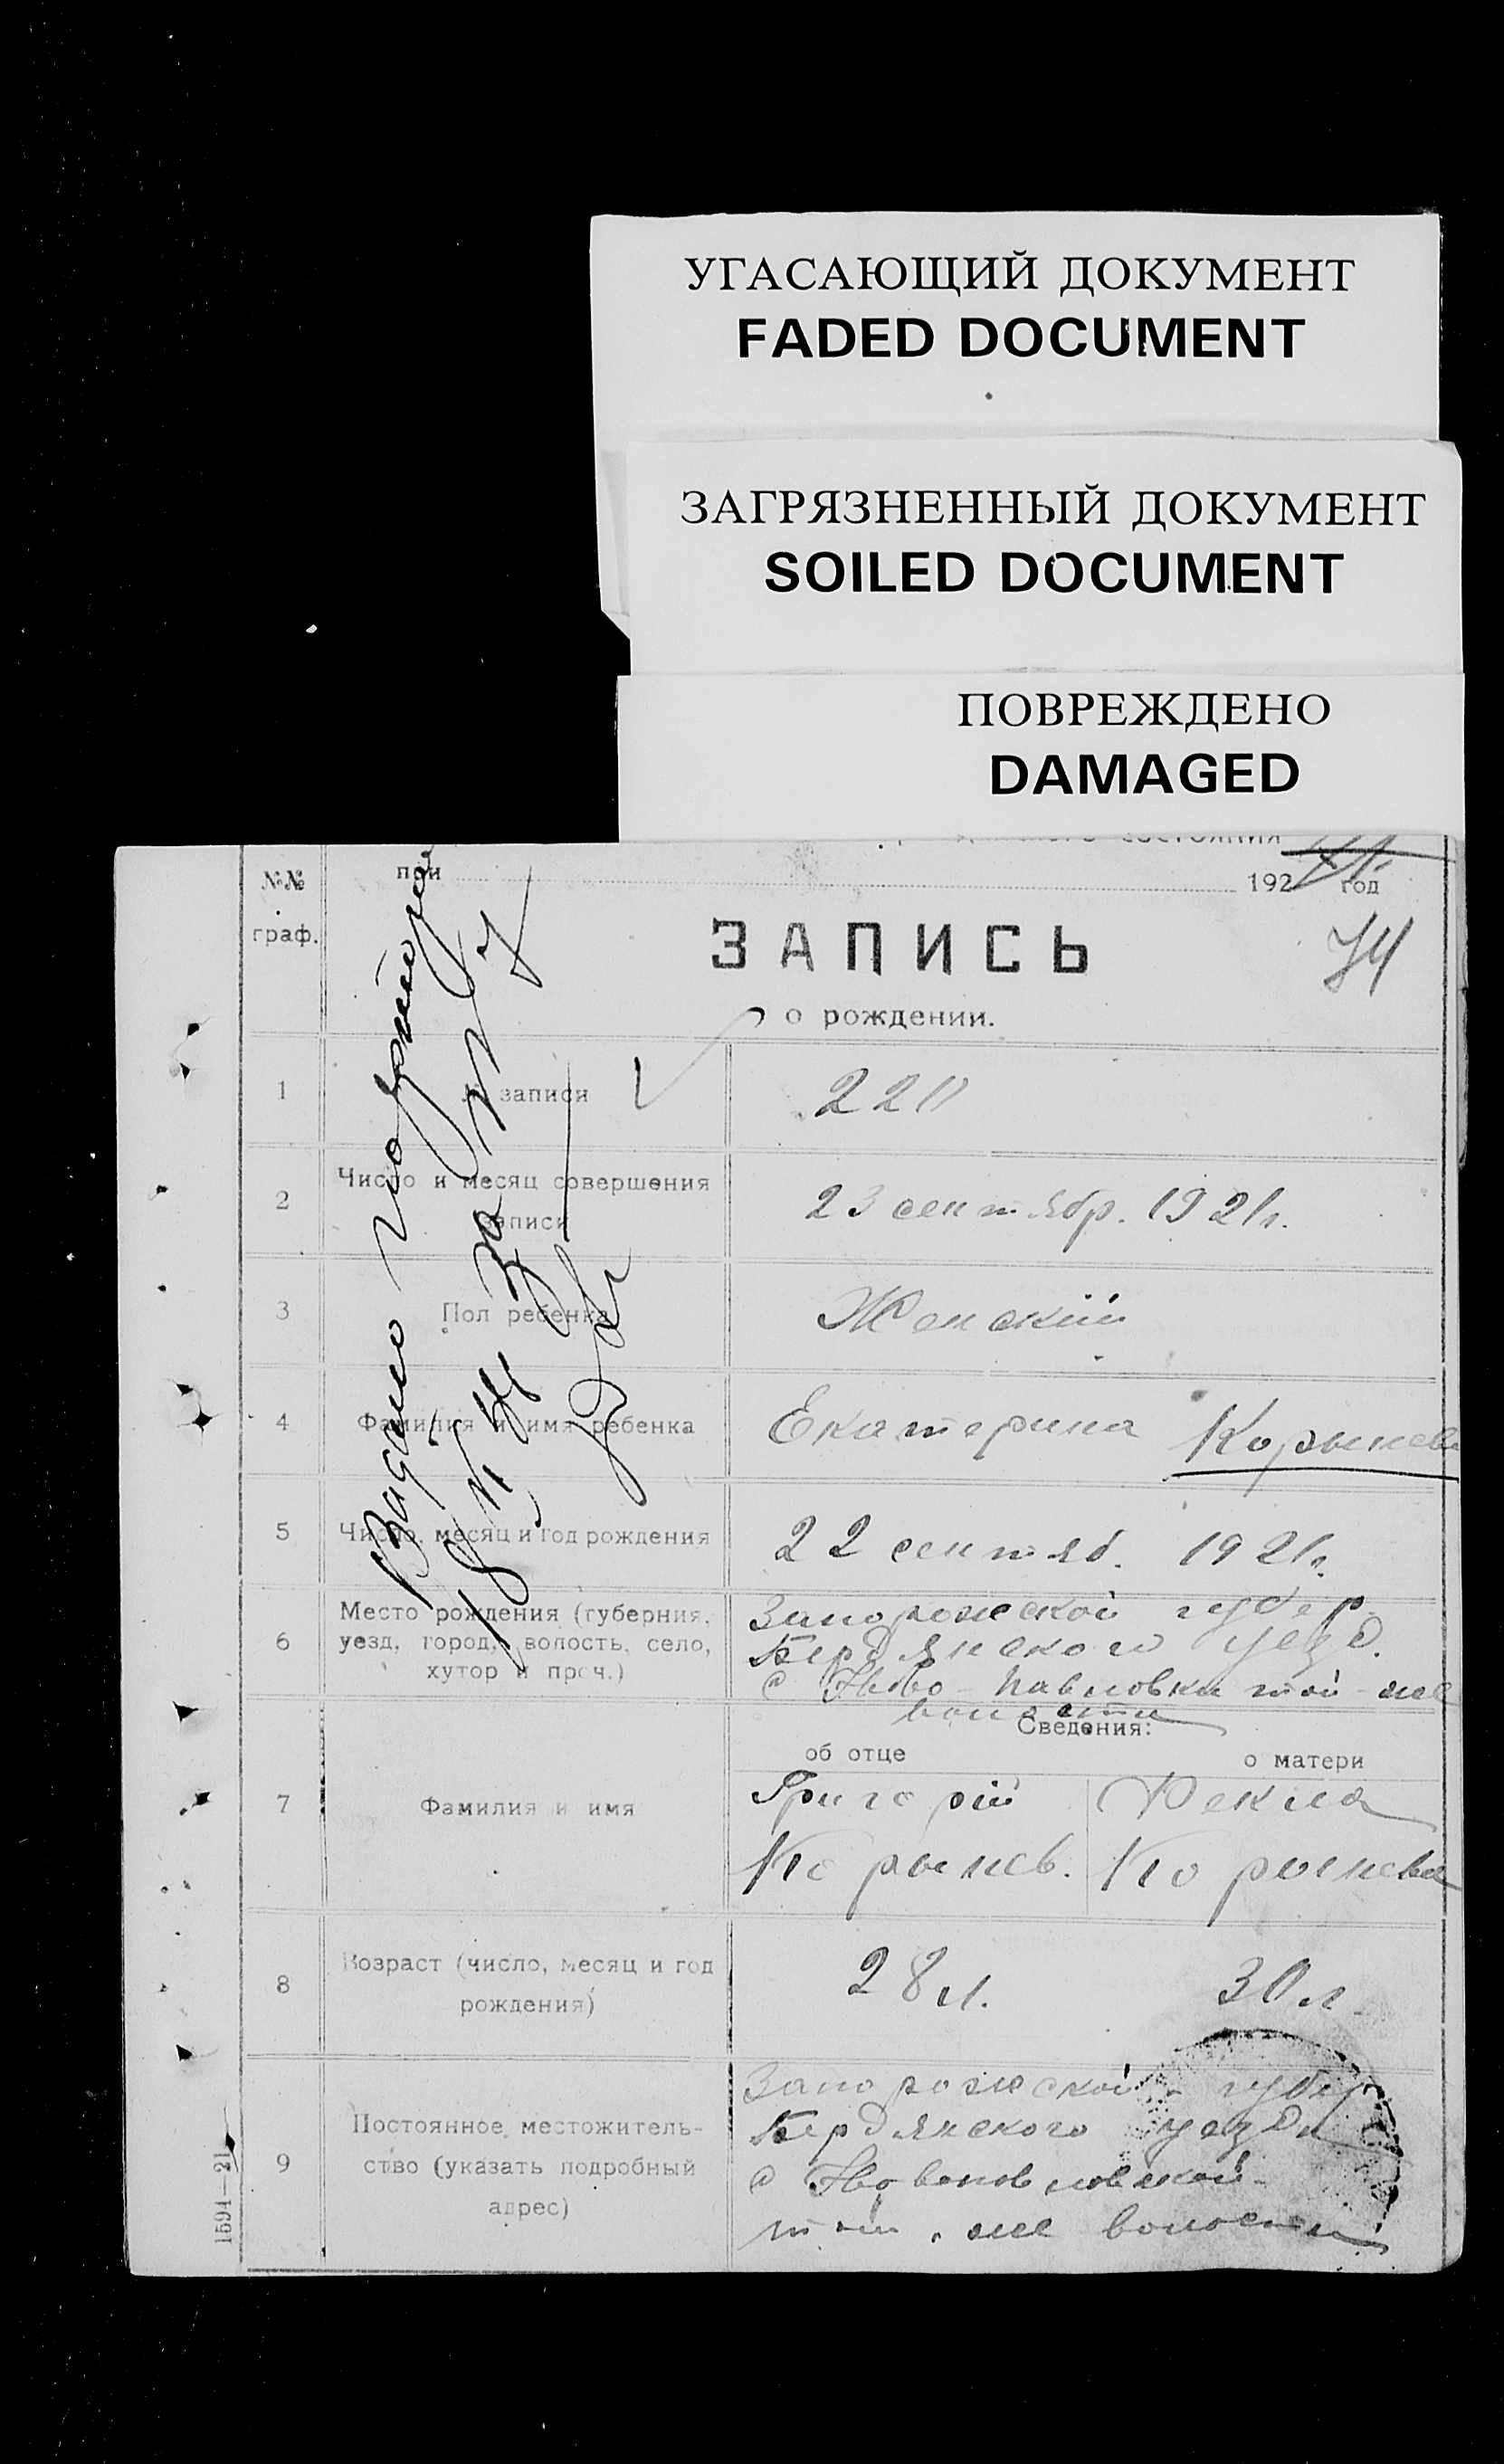 УГАСАЮЩИЙ ДОКУМЕНТ
FADED DOCUMENT
ЗАГРЯЗНЕННЫЙ ДОКУМЕНТ
SOILED DOCUMENT
ПОВРЕЖДЕНО
DAMAGED
состояния
№№ при 192 год
граф.
ЗАПИСЬ
74
о рождении.
1 № записи 220
2 Число и месяц совершения
записи
23 сентябр. 1921г.
3 Пол ребенка Женскій
4 Фамилия и имя ребенка Екатерина Корынева
5 Число, месяц и год рождения 22 сентяб. 1921г.
6 Место рождения (губерния,
уезд, город, волость, село,
хутор и проч.)
Запорожской губер.
Бердянского уезд.
с Ново-Павловки той-же
волости
Сведения:
об отце о матери
7 Фамилия и имя
Григорій Фекла
Корынев. Корынева
8 Возраст (число, месяц и год
рождения)
28 л. 30 л.
9 Постоянное местожитель-
ство (указать подробный
адрес)
Запорожской губер
Бердянского уезда
с
той же волости
Видано
за №
1594—21